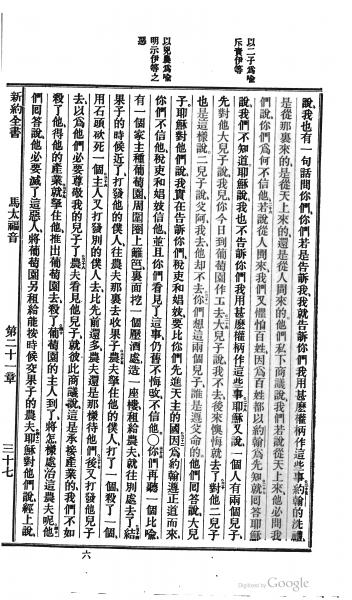 以二子爲喩
斥責伊等
以兇農爲喩
明示伊等之
惡
說我也有一句話問你們你們若是告訴我我就告訴你們我用甚麽權柄作這些事約翰的洗禮
是從那裏來的是從天上來的還是從人間來的他們私下商議說我們若說從天上來他必問我
們說你們爲何不信他若說從人間來我們又懼怕百姓因爲百姓都以約翰爲先知就回答耶穌
說我們不知道耶穌說我也不告訴你們我用甚麽權柄作這些事耶穌又說一個人有兩個兒子
先對他大兒子說我兒你今日到葡萄園作工去大兒子說我不去後來懊悔就去了對他二兒子
也是這樣說二兒子說父阿我去他却不去你們想這兩個兒子誰是遵父命的他們回答說大兒
子耶穌對他們說我實在告訴你們稅吏和娼妓要比你們先進天主的國因爲約翰遵正道而來
你們不信他稅吏和娼妓倒信他並且你們看見了這事仍舊不悔改不信他〇你們再聽一個比喩
有一個家主種葡萄園周圍圈上籬笆裏面挖一個壓酒處造一座樓租給農夫就往別處去了結
果子的時候近了打發他的僕人往農夫那裏去收果子農夫拏住他的僕人打了一個殺了一個
用石頭砍死一個主人又打發別的僕人去比先前還多農夫還是那樣待他們後又打發他兒子
去以爲他們必要尊敬我的兒子了農夫看見他兒子就彼此商議說這是承接產業的我們不如
殺了他得他的產業就拏住他推出葡萄園去殺了葡萄園的主人到了將怎樣處治這農夫呢他
們回答說他必要滅了這惡人將葡萄園另租給能按時候交果子的農夫耶穌對他們說經上說
新約全書 馬太福音 第二十一章 三十七
六
Digitized by Google